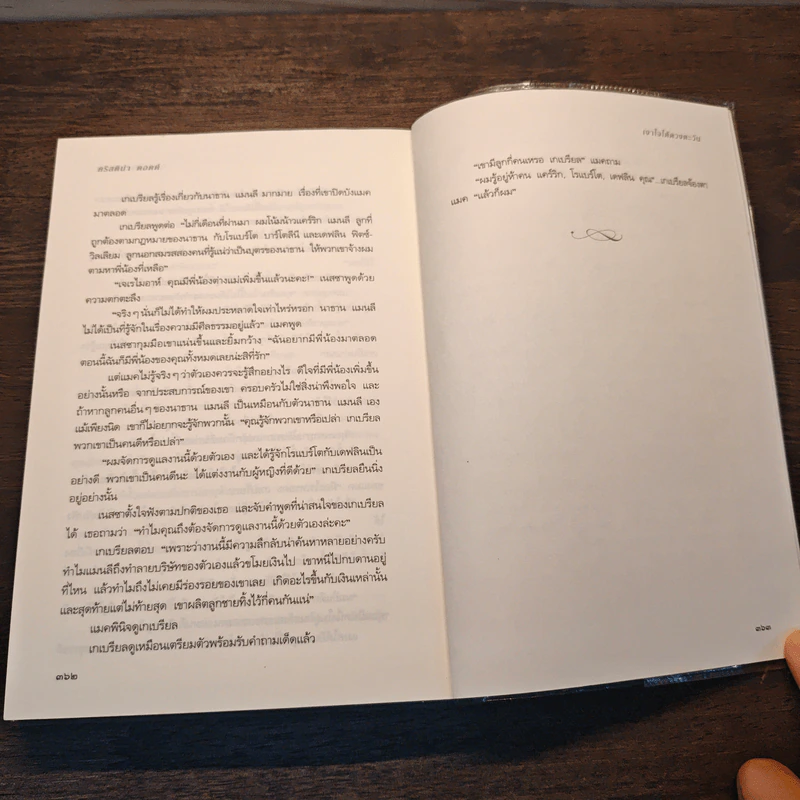 คริสตินา ดอดด์
เกเบรียลรู้เรื่องเกี่ยวกับนาธาน แมนลี มากมาย เรื่องที่เขาปิดบังแมค
มาตลอด
เกเบรียลพูดต่อ “ไม่กี่เดือนที่ผ่านมา ผมโน้มน้าวแคร์ริก แมนลี ลูกที่
ถูกต้องตามกฎหมายของนาธาน กับโรแบร์โต บาร์โตลีนี และเดฟลิน ฟิตซ์-
วิลเลียม ลูกนอกสมรสสองคนที่รู้แน่ว่าเป็นบุตรของนาธาน ให้พวกเขาจ้างผม
ตามหาพี่น้องที่เหลือ”
“เจเรไมอาห์ คุณมีพี่น้องต่างแม่เพิ่มขึ้นแล้วนะคะ!” เนสซาพูดด้วย
ความตกตะลึง
“จริงๆ นั่นก็ไม่ได้ทำให้ผมประหลาดใจเท่าไหร่หรอก นาธาน แมนลี
ไม่ได้เป็นที่รู้จักในเรื่องความมีศีลธรรมอยู่แล้ว” แมคพูด
เนสซากุมมือเขาแน่นขึ้นและยิ้มกว้าง “ฉันอยากมีพี่น้องมาตลอด
ตอนนี้ฉันก็มีพี่น้องของคุณทั้งหมดเลยน่ะสิที่รัก”
แต่แมคไม่รู้จริงๆ ว่าตัวเองควรจะรู้สึกอย่างไร ดีใจที่มีพี่น้องเพิ่มขึ้น
อย่างนั้นหรือ จากประสบการณ์ของเขา ครอบครัวไม่ใช่สิ่งน่าพึงพอใจ และ
ถ้าหากลูกคนอื่นๆ ของนาธาน แมนลี เป็นเหมือนกับตัวนาธาน แมนลี เอง
แม้เพียงนิด เขาก็ไม่อยากจะรู้จักพวกนั้น “คุณรู้จักพวกเขาหรือเปล่า เกเบรียล
พวกเขาเป็นคนดีหรือเปล่า”
“ผมจัดการดูแลงานนี้ด้วยตัวเอง และได้รู้จักโรแบร์โตกับเดฟลินเป็น
อย่างดี พวกเขาเป็นคนดีนะ ได้แต่งงานกับผู้หญิงที่ดีด้วย” เกเบรียลยืนนิ่ง
อยู่อย่างนั้น
เนสซาตั้งใจฟังตามปกติของเธอ และจับคำพูดที่น่าสนใจของเกเบรียล
ได้ เธอถามว่า “ทำไมคุณถึงต้องจัดการดูแลงานนี้ด้วยตัวเองล่ะคะ”
เกเบรียลตอบ “เพราะว่างานนี้มีความลึกลับน่าค้นหาหลายอย่างครับ
ทำไมแมนลีถึงทำลายบริษัทของตัวเองแล้วขโมยเงินไป เขาหนีไปกบดานอยู่
ที่ไหน แล้วทำไมถึงไม่เคยมีร่องรอยของเขาเลย เกิดอะไรขึ้นกับเงินเหล่านั้น
และสุดท้ายแต่ไม่ท้ายสุด เขาผลิตลูกชายทิ้งไว้กี่คนกันแน่”
แมคพินิจดูเกเบรียล
เกเบรียลดูเหมือนเตรียมตัวพร้อมรับคำถามเด็ดแล้ว
๓๖๒
เงาใจใต้ดวงตะวัน
“เขามีลูกกี่คนเหรอ เกเบรียล” แมคถาม
“ผมรู้อยู่ห้าคน แคร์ริก, โรแบร์โต, เดฟลิน คุณ”..เกเบรียลจ้องตา
แมค “แล้วก็ผม”
๓๖๓